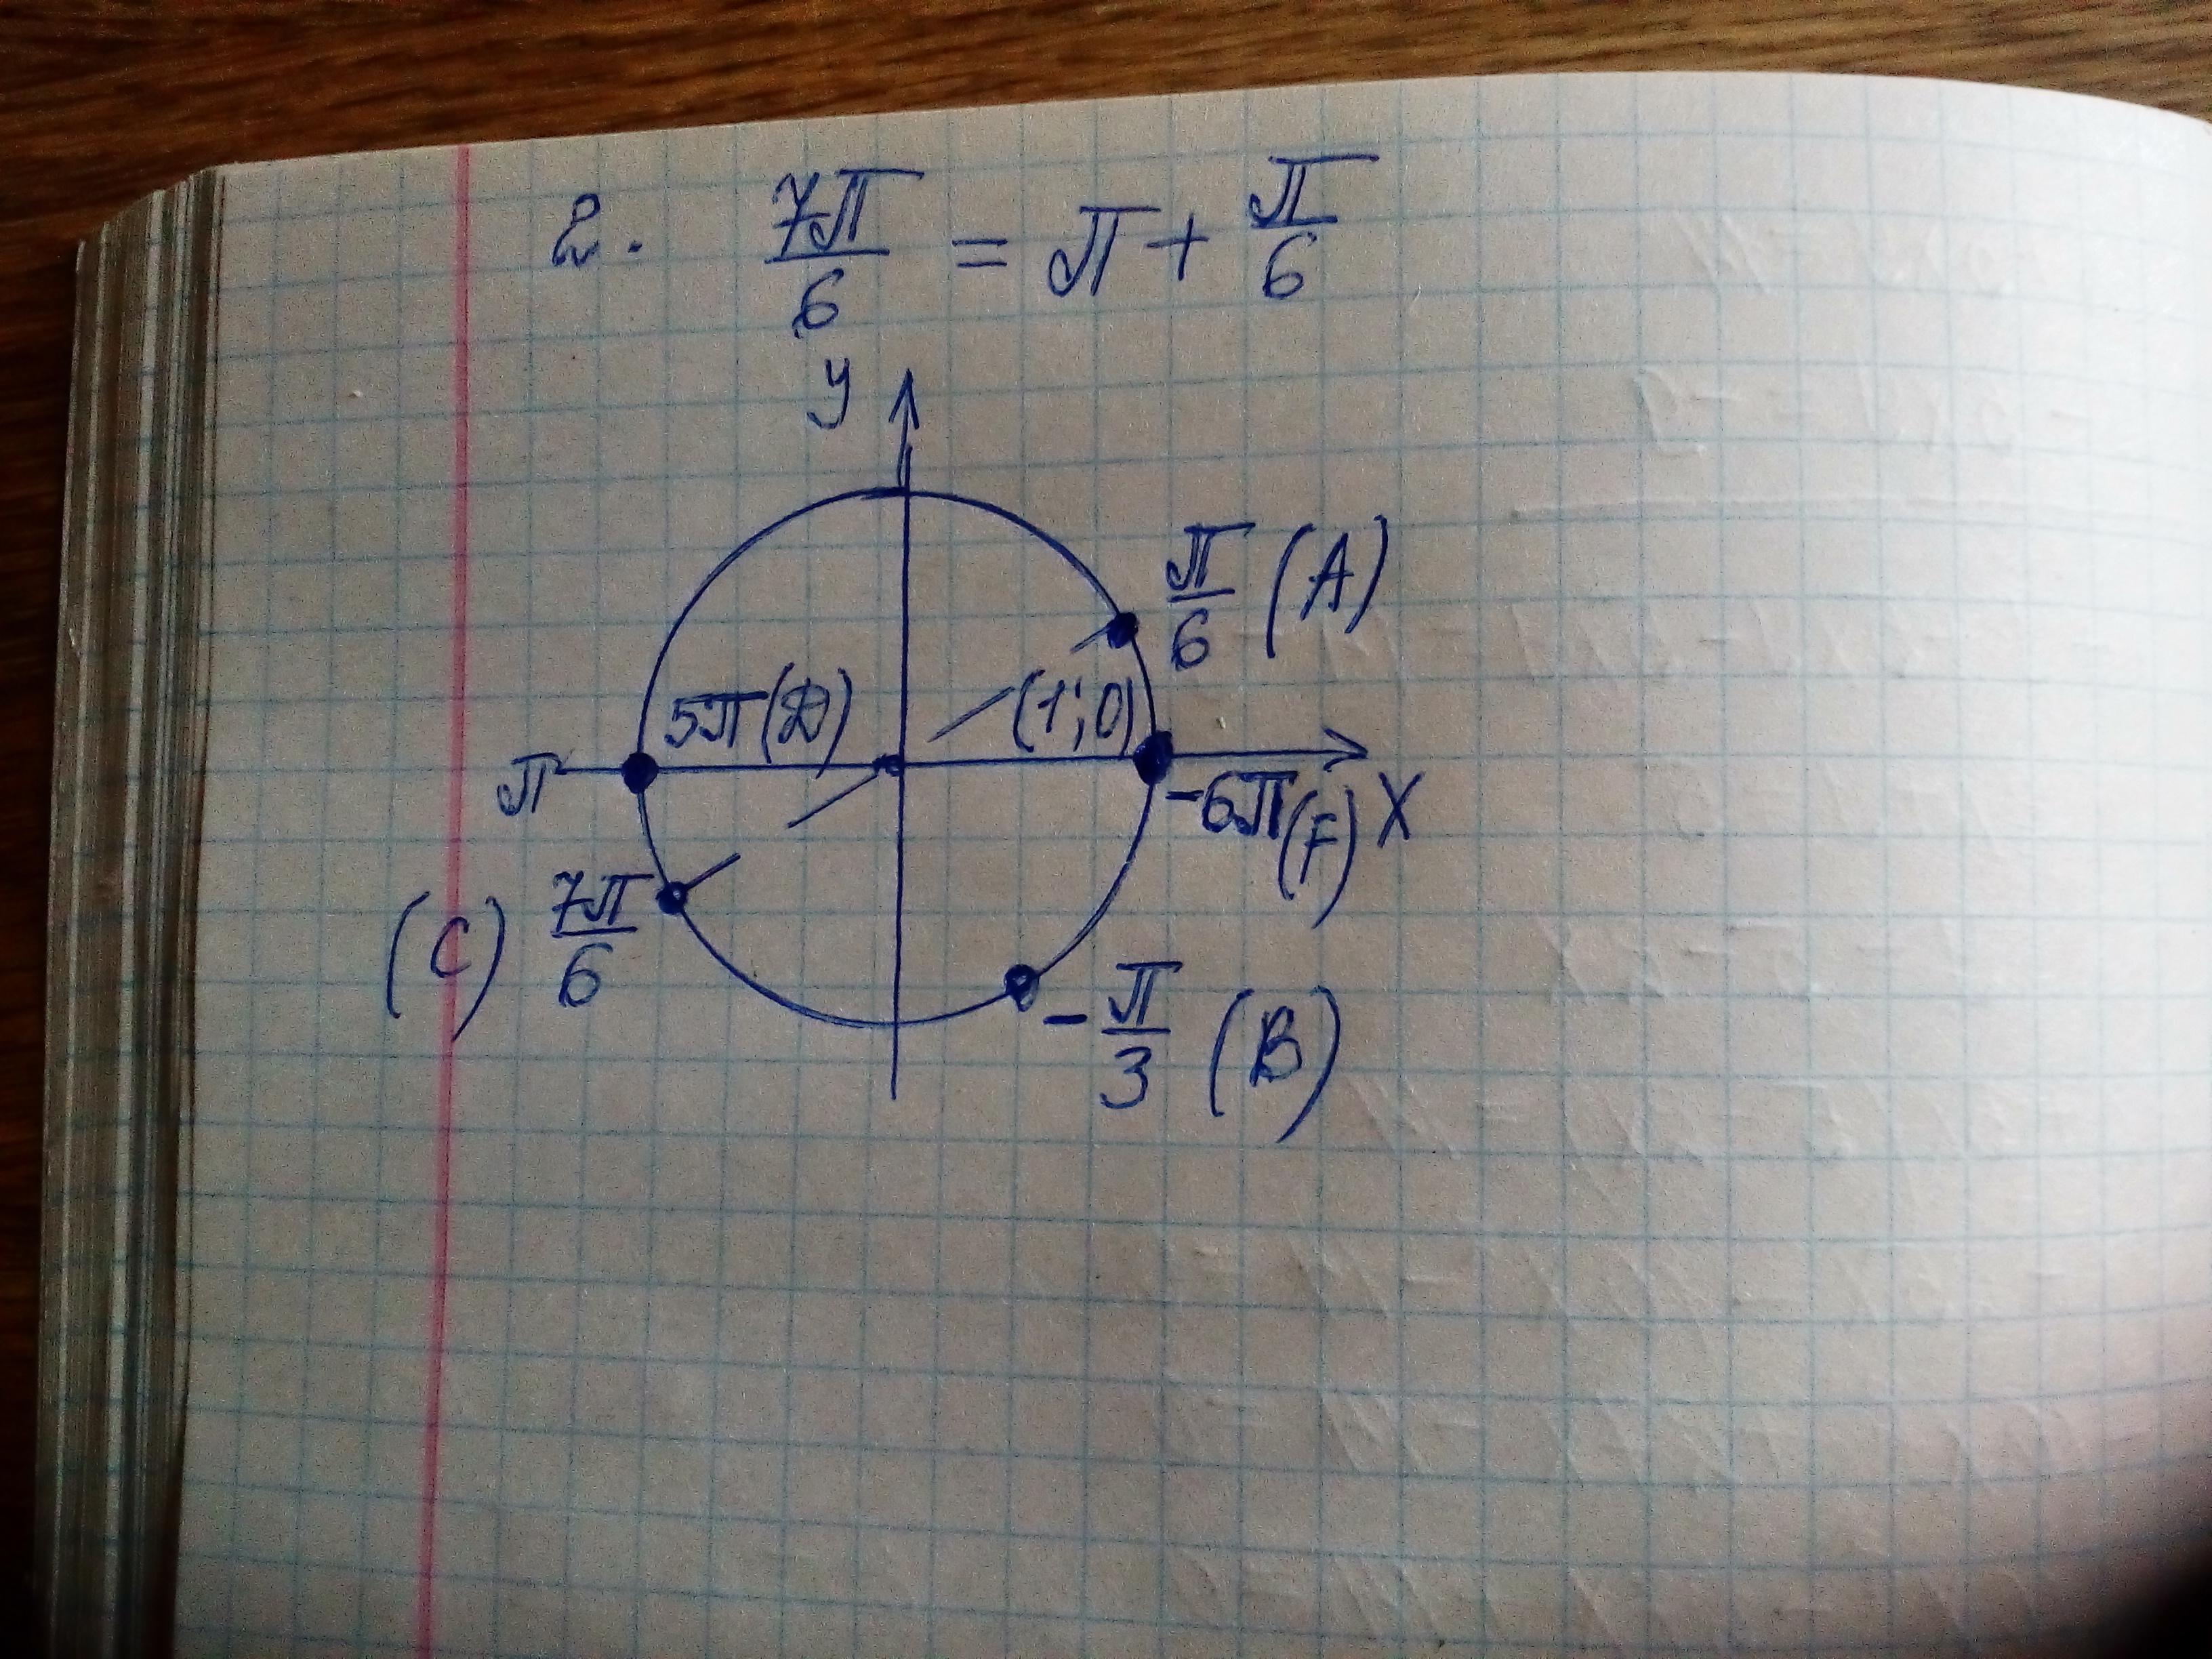 2. 7π/6 = π + π/6
y
π/6 (A)
5π (D) (1; 0)
π -6π (F) X
(C) 7π/6
-π/3 (B)